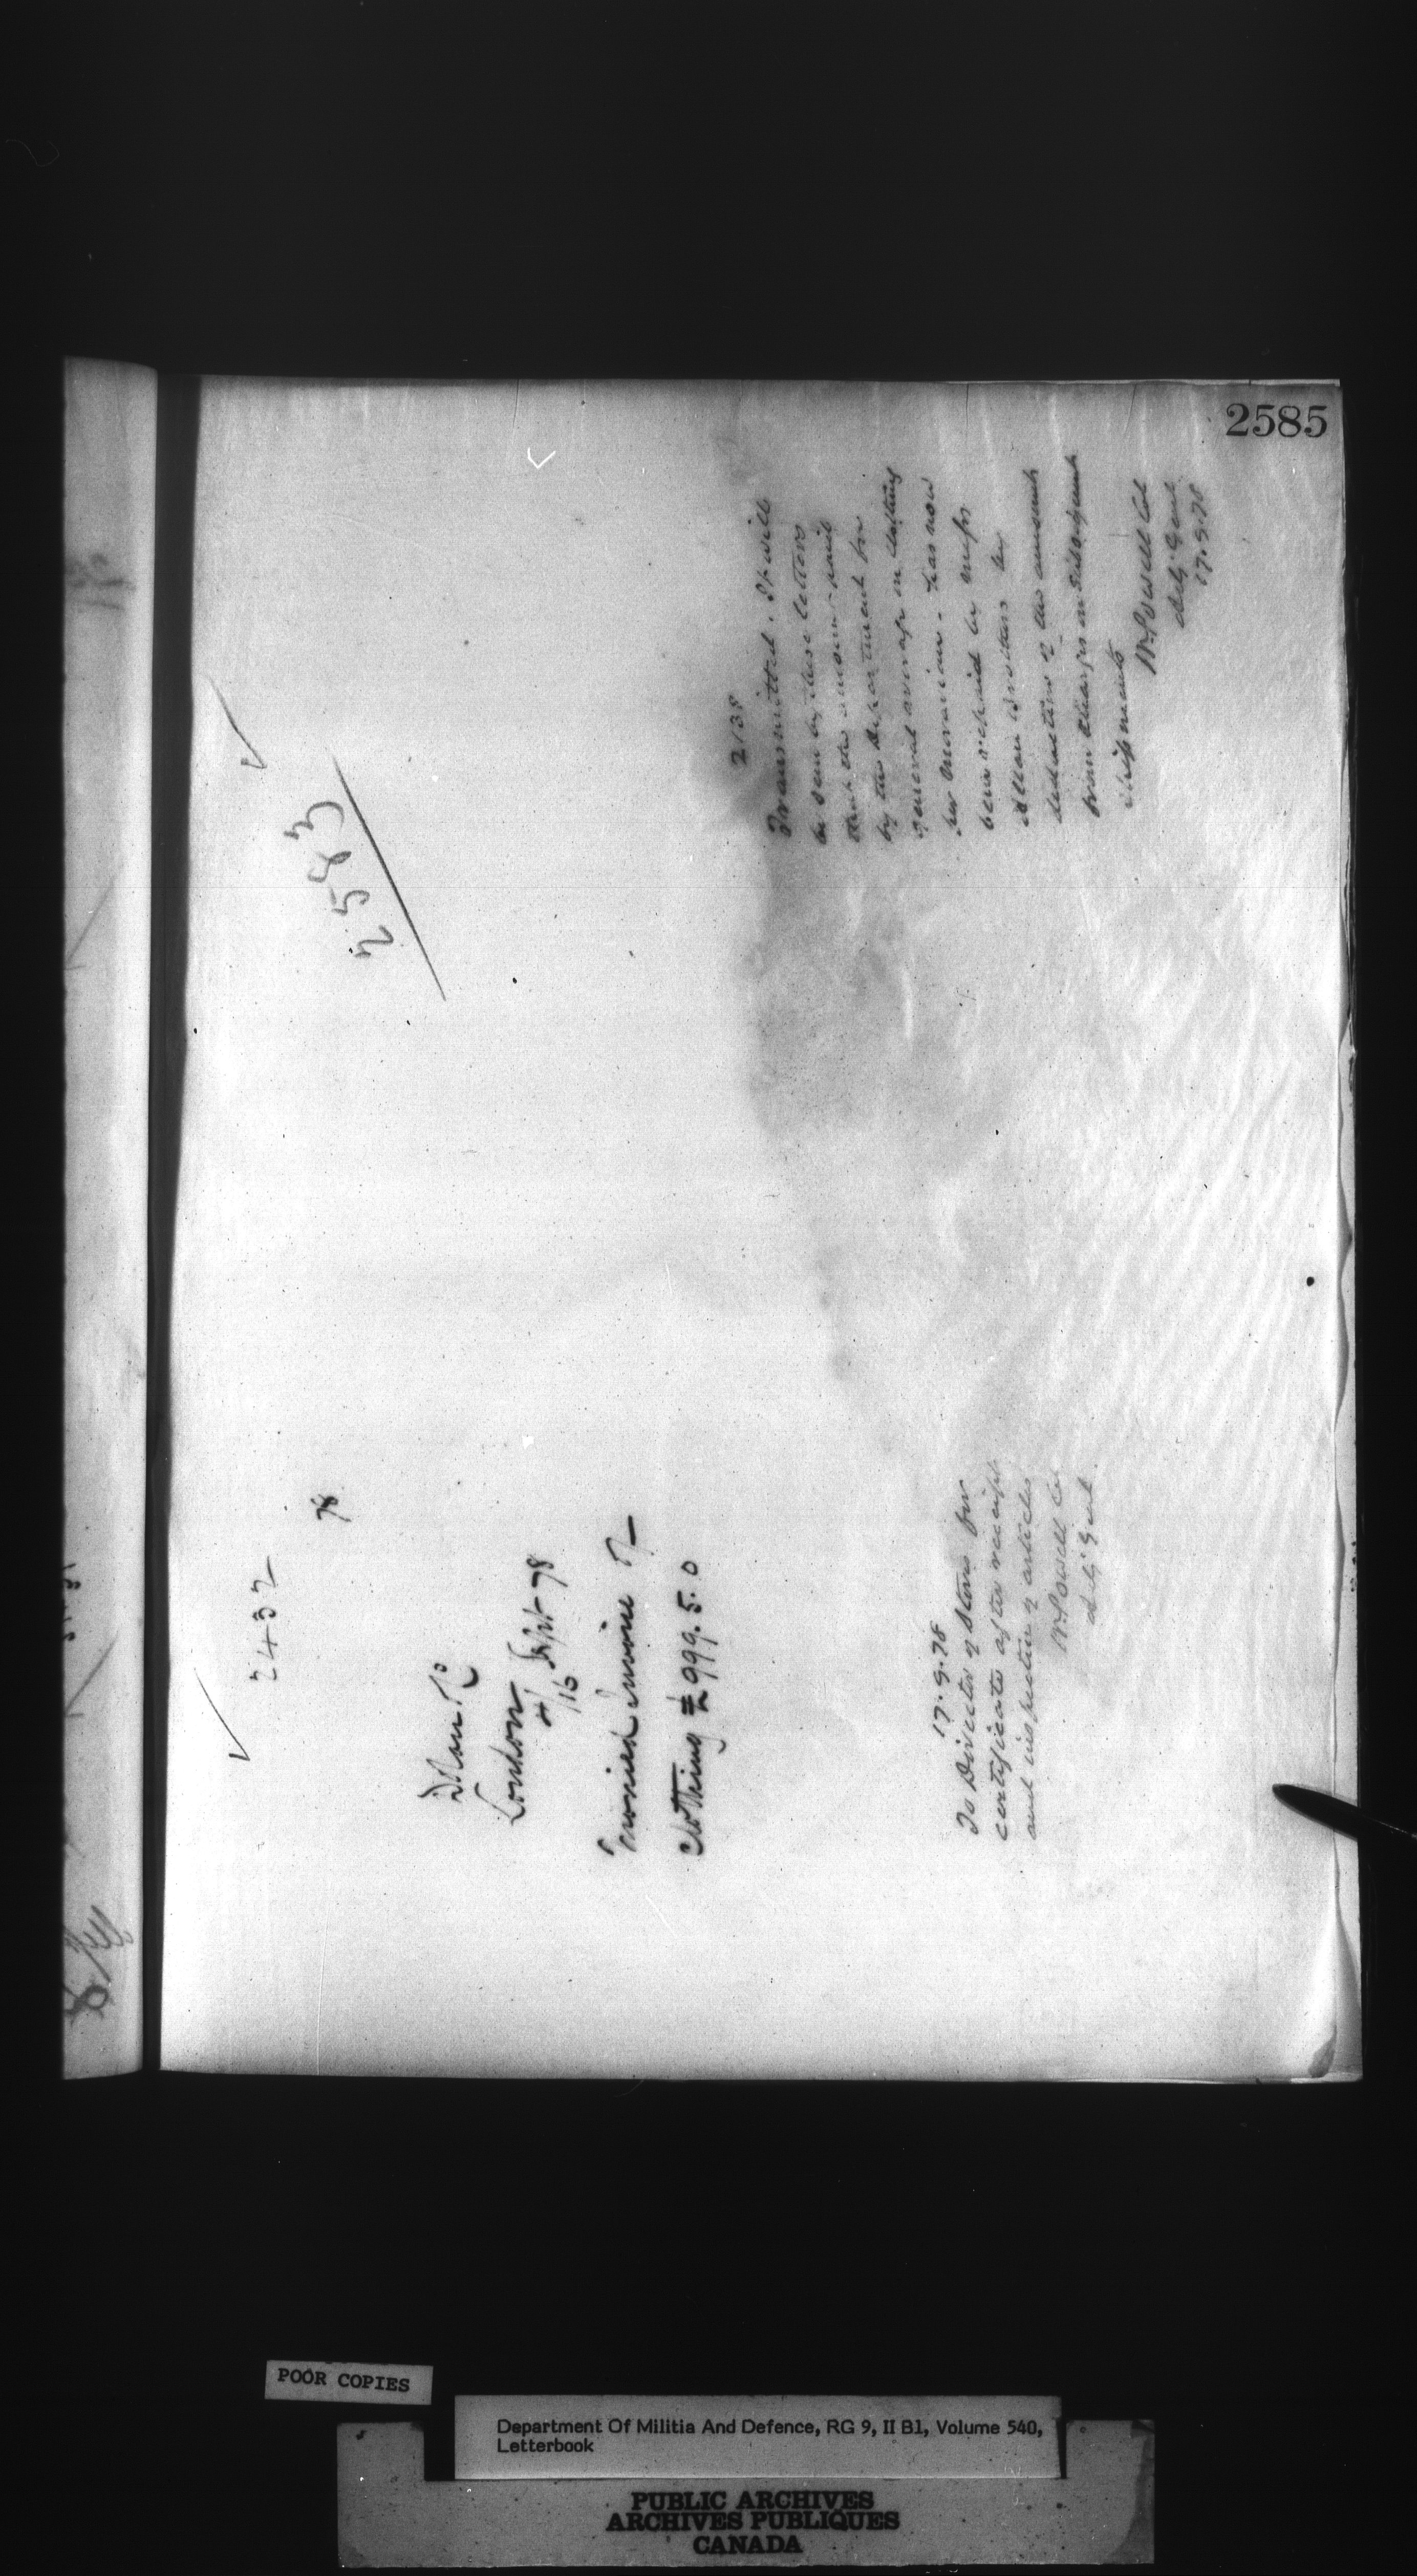 2585
2432
78
Allan &Co
London
4/16 Sept 78
Invoice of
Clothing £999.5.0
17.9.78
To Director of Stores for
certificate after receipt
and inspection of articles
W Powell Col
Adj. Genl
2583
2138
Transmitted. It will
be seen by these letters
that the amount paid
by the Department for
general average on clothing
per Moravian - has now
been repaid by Messrs
Allan Brothers by
deduction of the amount
from charges on subsequent
shipments
W Powell Col
Adj. Genl
17.9.78
POOR COPIES
Department Of Militia And Defence, RG 9, II B1, Volume 540,
Letterbook
PUBLIC ARCHIVES
ARCHIVES PUBLIQUES
CANADA